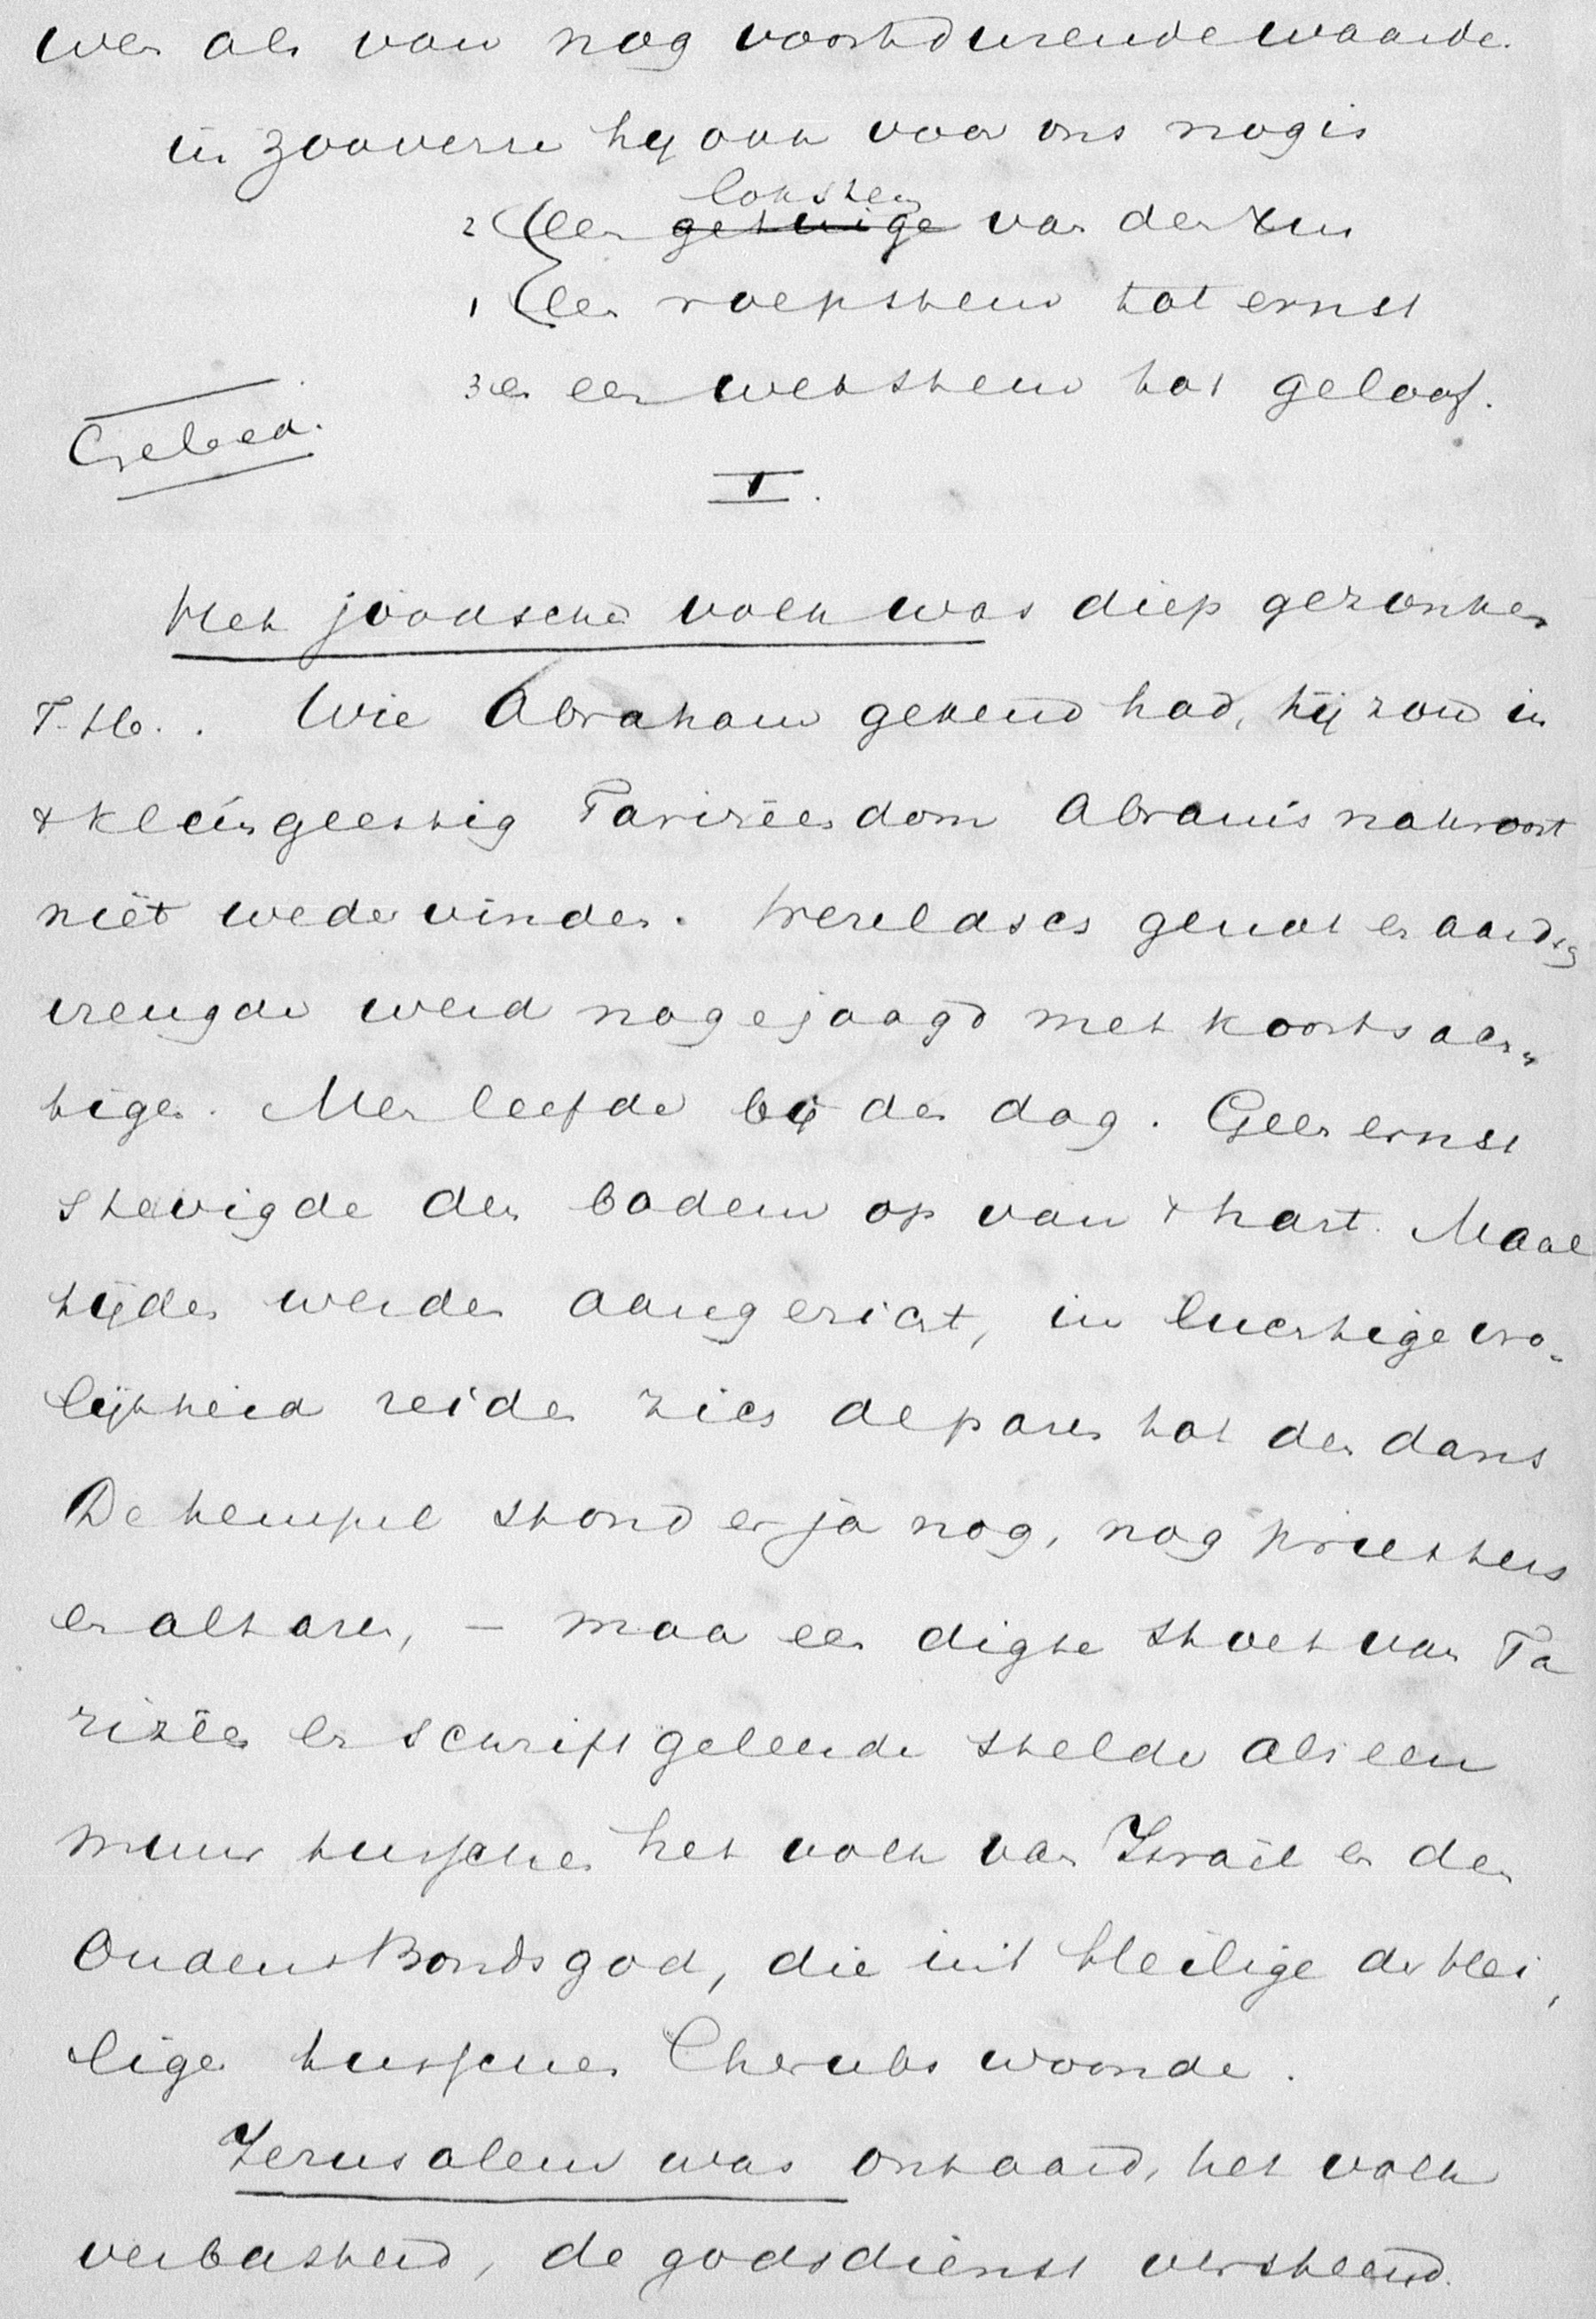 wer als van nog voortdurende waarde.
in zooverre hij ook voor ons nog is
lokstem
2 een getuige van den
1 een roepstem tot ernst
3 en een wekstem tot geloof.
Gebed.
I.
Het joodsche volk was diep gezonken
T. H. Wie Abraham gekend had, hij zou in
't kleingeestig Farizeesdom Abrams nakroost
niet wedervinden. Wereldsch genot en aardsch
vreugde werd nagejaagd met koortsach„
tigen. Men leefde bij den dag. Geen ernst
stevigde den bodem op van 't hart. Maal
tijden werden aangericht, in luchtige vro„
lijkheid reiden zich de paren tot den dans
De tempel stond er ja nog, nog priesters
en altaren, – maar een digte stoet van Fa
rizeën en schriftgeleerde stelde als een
muur tusschen het volk van Israël en den
Ouden Bondsgod, die in 't Heilige der Hei„
lige tusschen Cherubs woonde.
Jerusalem was ontaard, het volk
verbasterd, de godsdienst versteend.